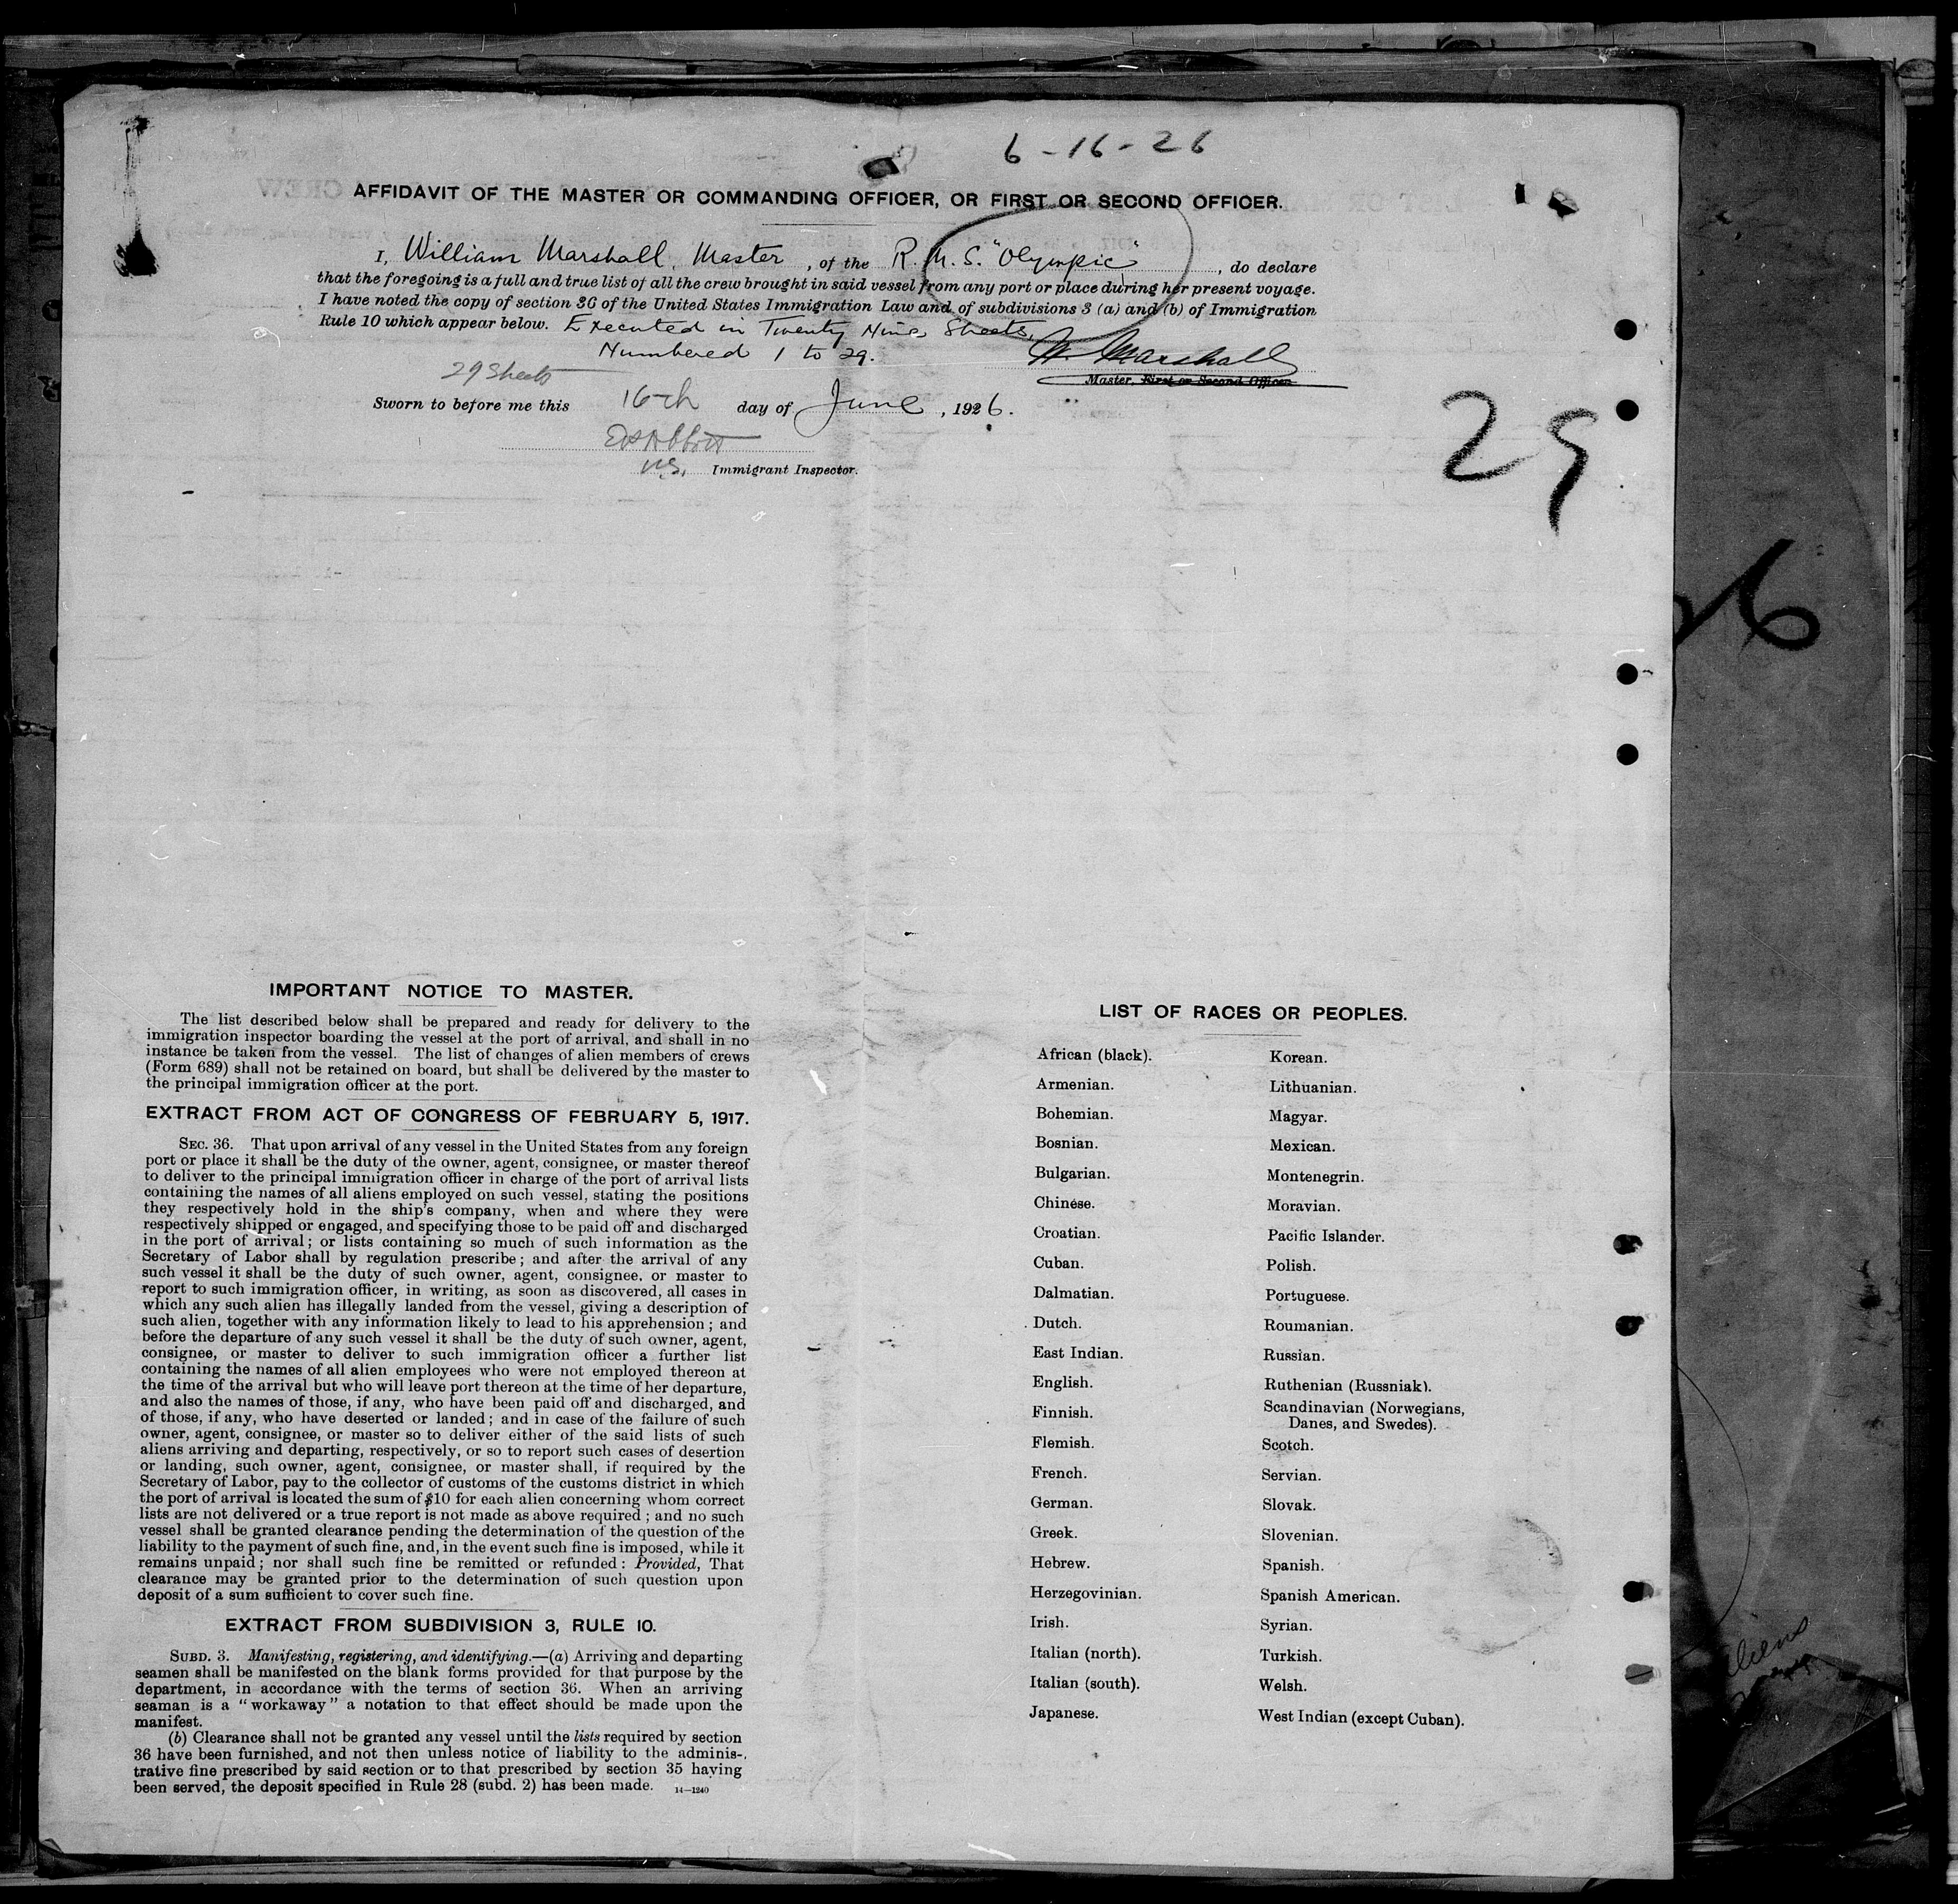 6-16-26
AFFIDAVIT OF THE MASTER OR COMMANDING OFFICER, OR FIRST OR SECOND OFFICER.
I, William Marshall, Master, of the R.M.S. "Olympic", do declare
that the foregoing is a full and true list of all the crew brought in said vessel from any port or place during her present voyage.
I have noted the copy of section 36 of the United States Immigration Law and of subdivisions 3 (a) and (b) of Immigration
Rule 10 which appear below. Executed in Twenty Nine Sheets,
Numbered 1 to 29.
W. Marshall
29 Sheets
Master, First or Second Officer.
Sworn to before me this 16th day of June, 1926.
U.S. Immigrant Inspector.
29
26
IMPORTANT NOTICE TO MASTER.
The list described below shall be prepared and ready for delivery to the
immigration inspector boarding the vessel at the port of arrival, and shall in no
instance be taken from the vessel. The list of changes of alien members of crews
(Form 689) shall not be retained on board, but shall be delivered by the master to
the principal immigration officer at the port.
EXTRACT FROM ACT OF CONGRESS OF FEBRUARY 5, 1917.
SEC. 36. That upon arrival of any vessel in the United States from any foreign
port or place it shall be the duty of the owner, agent, consignee, or master thereof
to deliver to the principal immigration officer in charge of the port of arrival lists
containing the names of all aliens employed on such vessel, stating the positions
they respectively hold in the ship's company, when and where they were
respectively shipped or engaged, and specifying those to be paid off and discharged
in the port of arrival; or lists containing so much of such information as the
Secretary of Labor shall by regulation prescribe; and after the arrival of any
such vessel it shall be the duty of such owner, agent, consignee, or master to
report to such immigration officer, in writing, as soon as discovered, all cases in
which any such alien has illegally landed from the vessel, giving a description of
such alien, together with any information likely to lead to his apprehension; and
before the departure of any such vessel it shall be the duty of such owner, agent,
consignee, or master to deliver to such immigration officer a further list
containing the names of all alien employees who were not employed thereon at
the time of the arrival but who will leave port thereon at the time of her departure,
and also the names of those, if any, who have been paid off and discharged, and
of those, if any, who have deserted or landed; and in case of the failure of such
owner, agent, consignee, or master so to deliver either of the said lists of such
aliens arriving and departing, respectively, or so to report such cases of desertion
or landing, such owner, agent, consignee, or master shall, if required by the
Secretary of Labor, pay to the collector of customs of the customs district in which
the port of arrival is located the sum of $10 for each alien concerning whom correct
lists are not delivered or a true report is not made as above required; and no such
vessel shall be granted clearance pending the determination of the question of the
liability to the payment of such fine, and, in the event such fine is imposed, while it
remains unpaid; nor shall such fine be remitted or refunded: Provided, That
clearance may be granted prior to the determination of such question upon
deposit of a sum sufficient to cover such fine.
EXTRACT FROM SUBDIVISION 3, RULE 10.
SUBD. 3. Manifesting, registering, and identifying.—(a) Arriving and departing
seamen shall be manifested on the blank forms provided for that purpose by the
department, in accordance with the terms of section 36. When an arriving
seaman is a "workaway" a notation to that effect should be made upon the
manifest.
(b) Clearance shall not be granted any vessel until the lists required by section
36 have been furnished, and not then unless notice of liability to the adminis-
trative fine prescribed by said section or to that prescribed by section 35 having
been served, the deposit specified in Rule 28 (subd. 2) has been made. 14—1240
LIST OF RACES OR PEOPLES.
African (black).
Armenian.
Bohemian.
Bosnian.
Bulgarian.
Chinese.
Croatian.
Cuban.
Dalmatian.
Dutch.
East Indian.
English.
Finnish.
Flemish.
French.
German.
Greek.
Hebrew.
Herzegovinian.
Irish.
Italian (north).
Italian (south).
Japanese.
Korean.
Lithuanian.
Magyar.
Mexican.
Montenegrin.
Moravian.
Pacific Islander.
Polish.
Portuguese.
Roumanian.
Russian.
Ruthenian (Russniak).
Scandinavian (Norwegians,
Danes, and Swedes).
Scotch.
Servian.
Slovak.
Slovenian.
Spanish.
Spanish American.
Syrian.
Turkish.
Welsh.
West Indian (except Cuban).